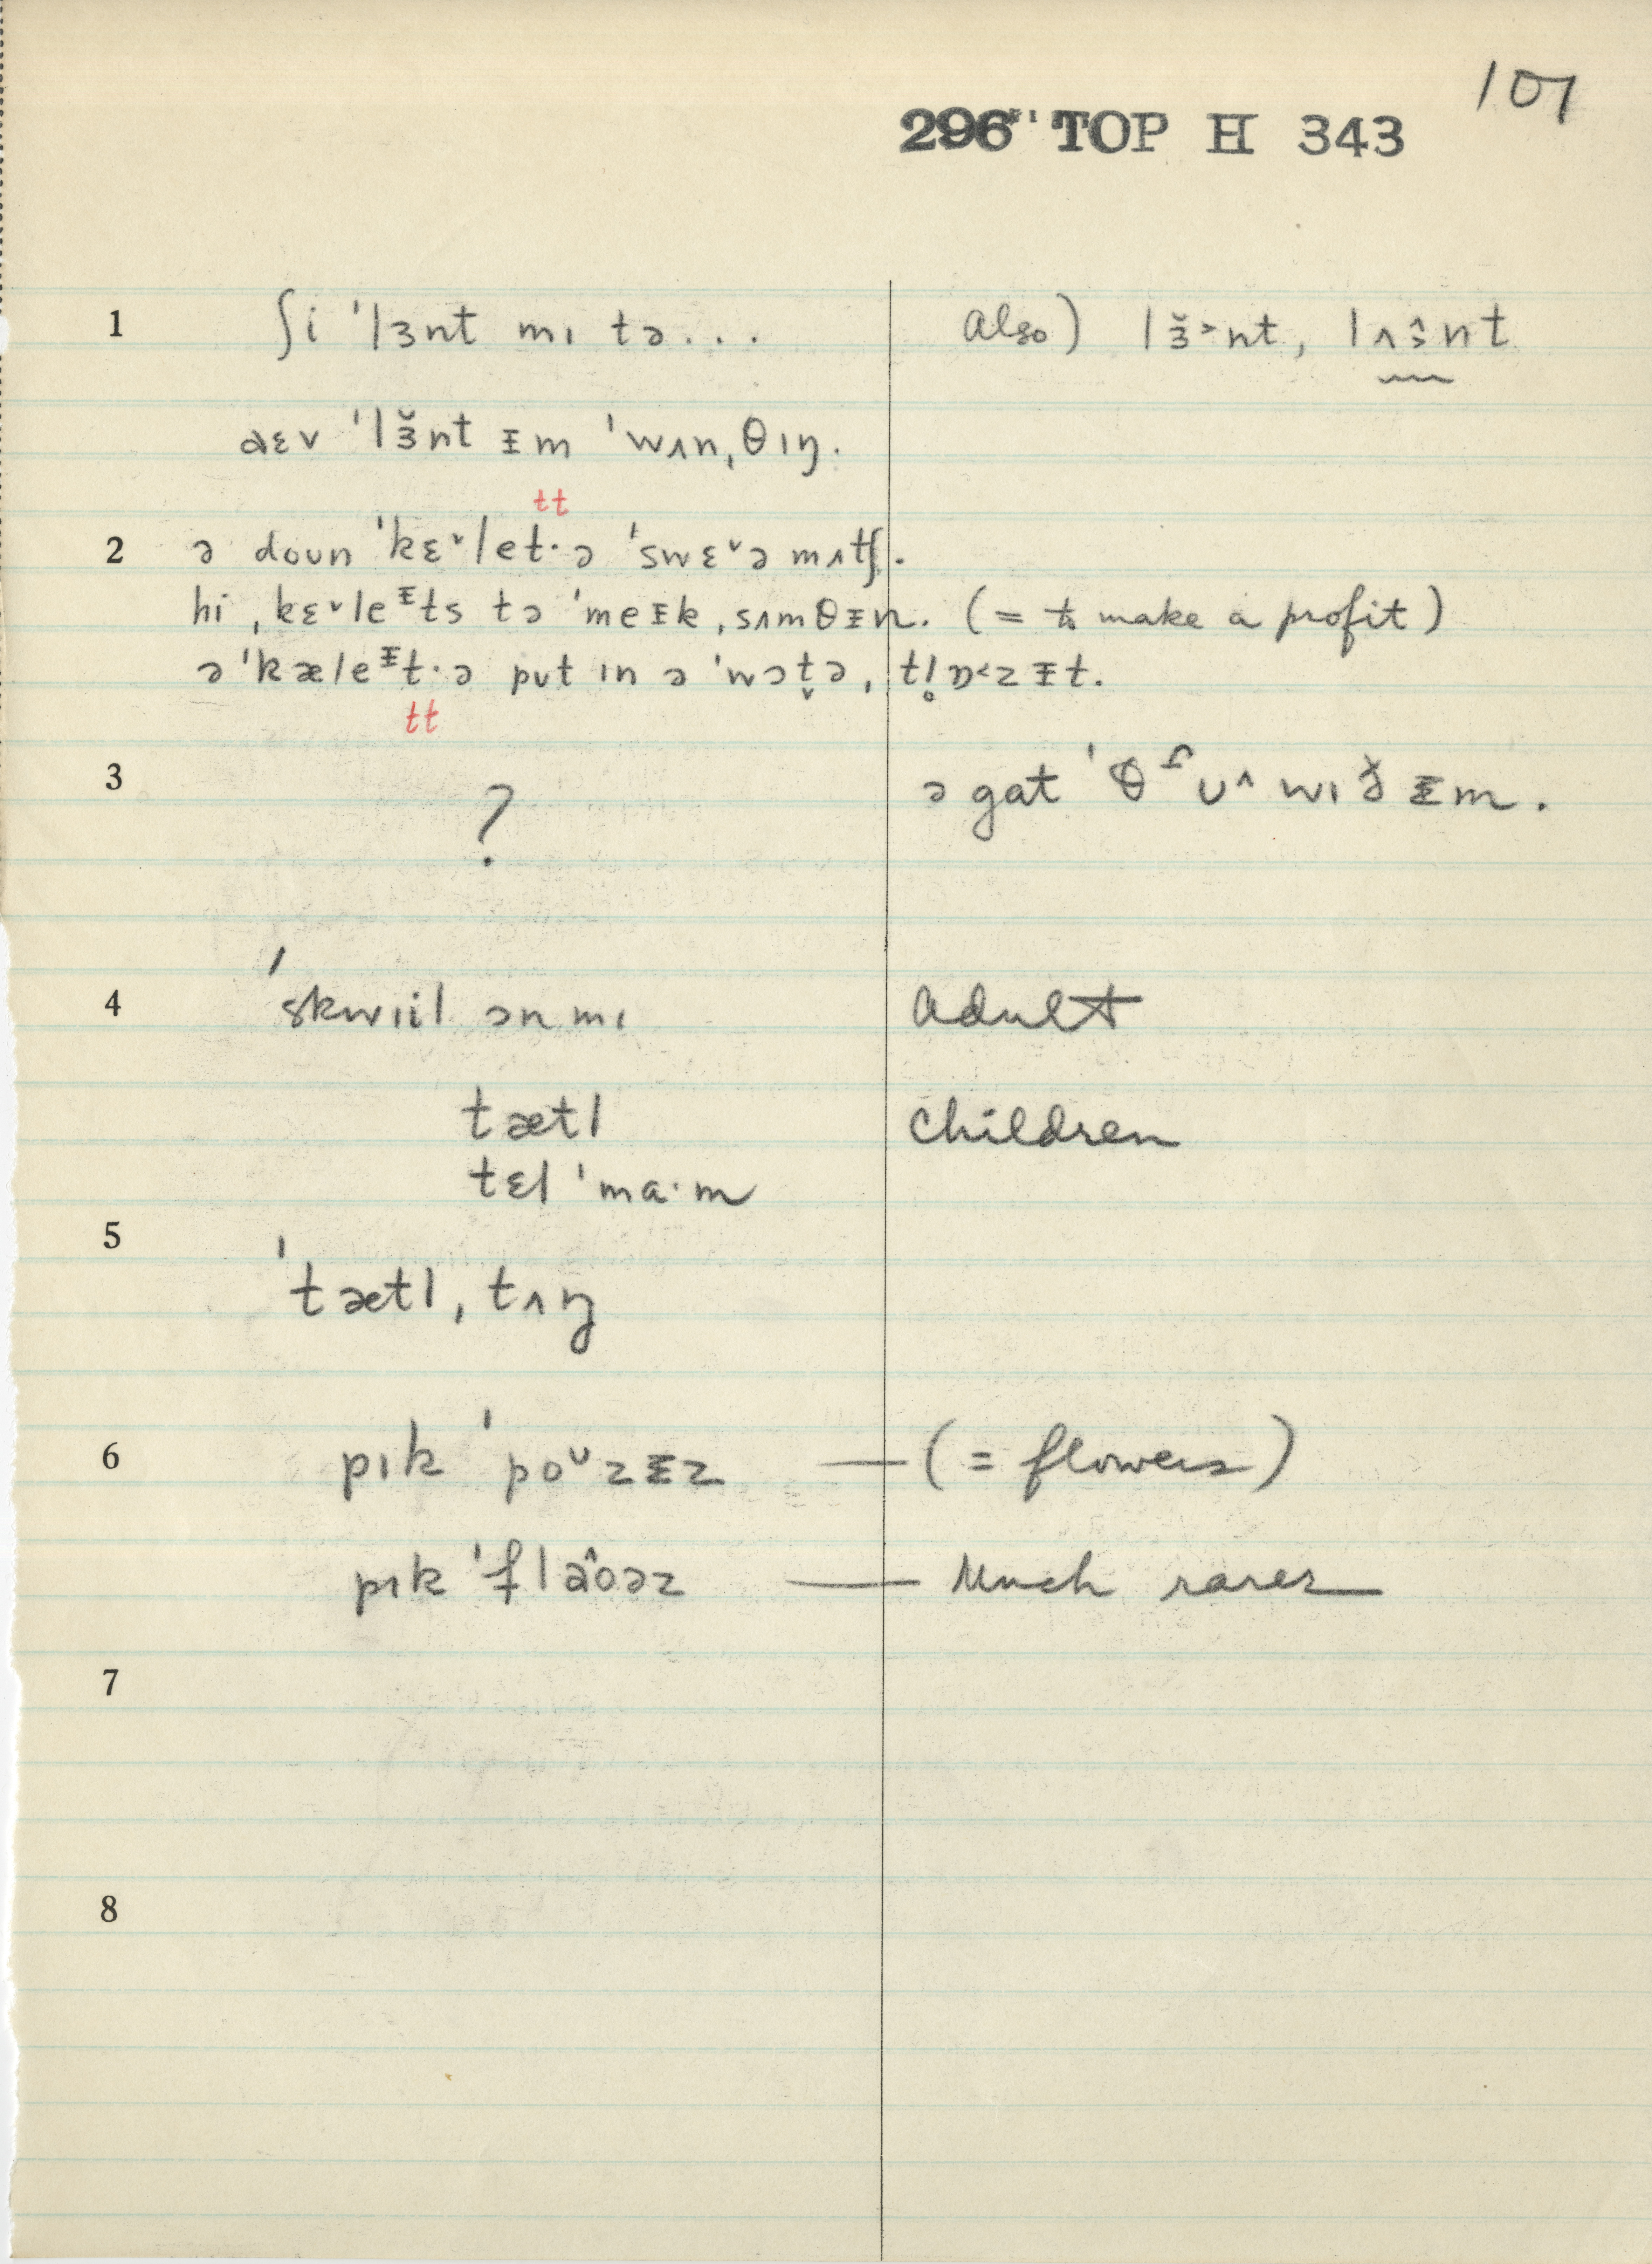 107
296 TOP H 343
1 ʃi ˈlɜnt mɪ tə... Also) lɜ̆˃nt, lʌɜ̂nt
aɛv ˈlɜ̆nt ᵻm ˈwʌnˌθɪŋ.
tt
2 ə doun ˈkɛ˅let·ə ˈswɛ˅ə mʌtʃ.
hi ˌkɛ˅leᵻts tə ˈmeᵻkˌsʌmθᵻn. (= to make a profit)
ə ˈkæleᵻt·ə put ɪn ə ˈwɔt̬əˌtl̥ɒ˂zᵻt.
tt
3 ? ə gat ˈθ ʊ^ wɪð ᵻm.
4 ˈskwɪil ən mɪ Adult
tætl Children
tɛl ˈma·m
5
ˈtætlˌtʌŋ
6 pɪk ˈpo˅zᵻz — (= flowers)
pɪk ˈflâoəz — Much rarer
7
8